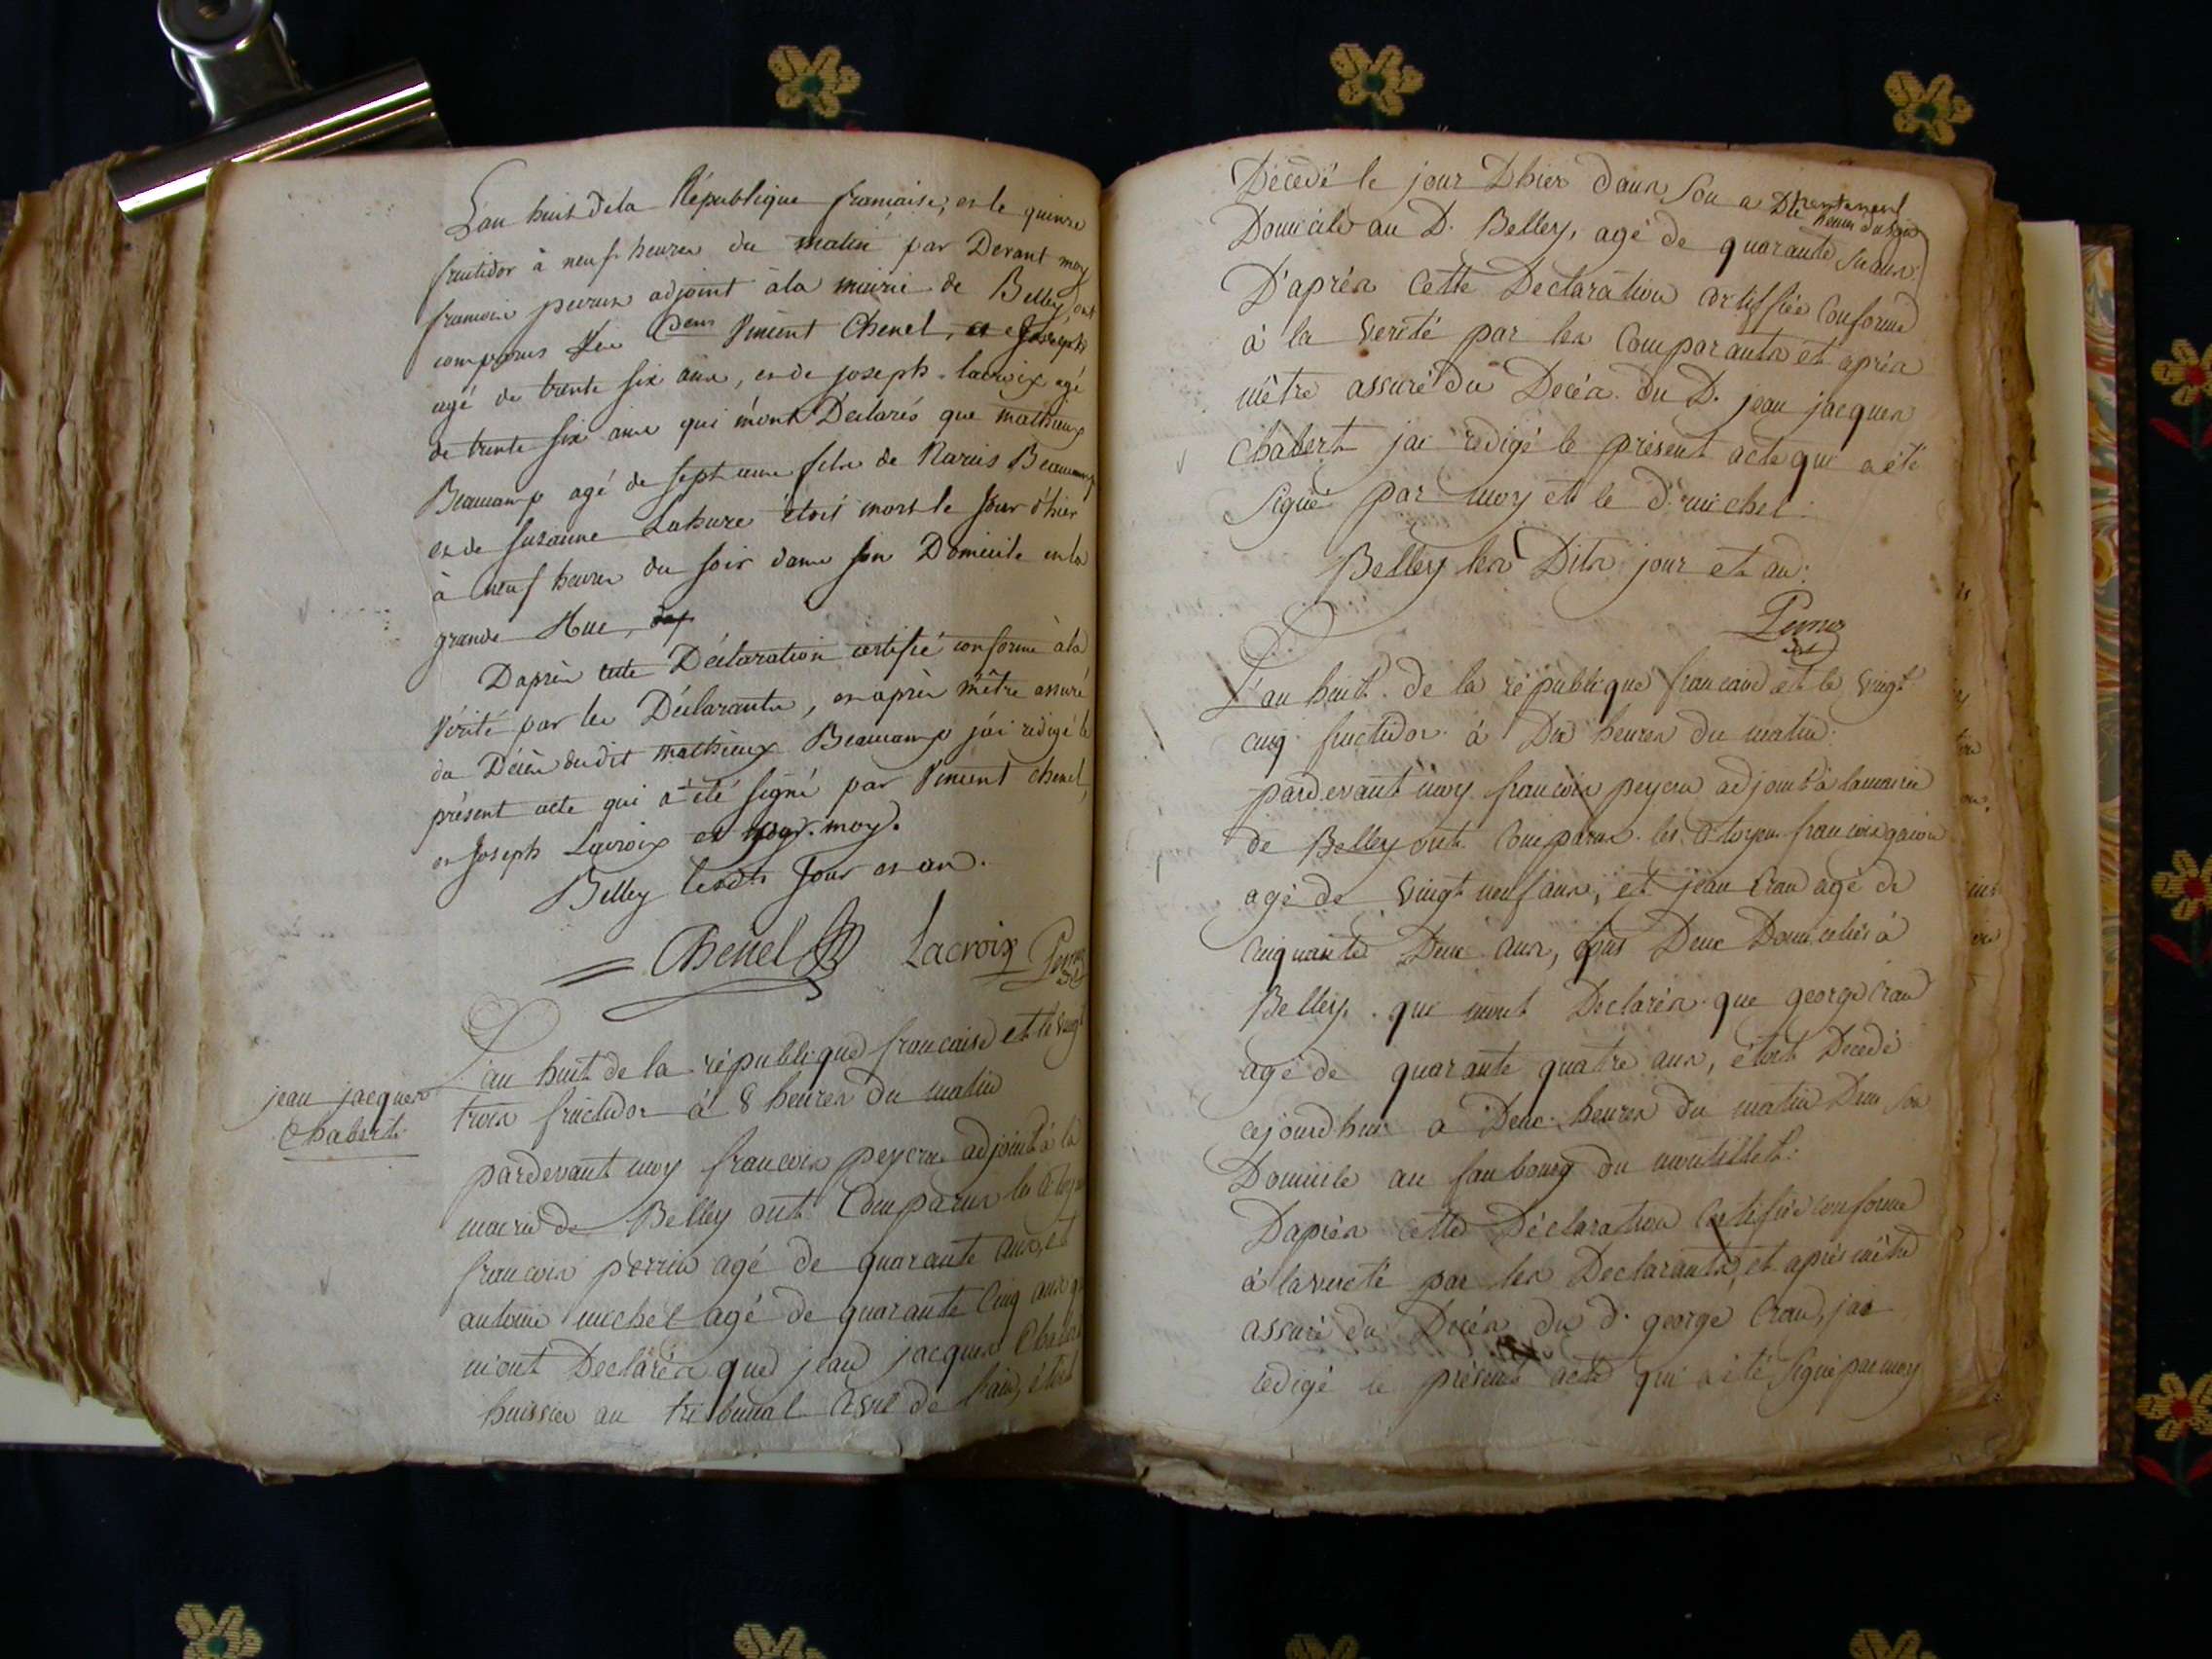 L'an huit de la République française, et le quinze
fructidor à neuf heures du matin par Devant moy
francois peirus adjoint à la mairie de Belley, ont
comparus Les Cens Vincent Chenel, et Joseph
agé de trente six ans, et de joseph lacroix agé
de trente six ans qui m'ont Déclarés que mathieux
Beaucamp agé de sept ans fils de Beaucamp
et de Susanne Lahure étoit mort le Jour d'hier
à neuf heures du soir dans son Domicile en la
grande Rue,
D'après cette Déclaration certifié conforme à la
Vérité par les Déclarants, et après mêtre assuré
du Décès dudit mathieux Beaucamp j'ai redigé le
présent acte qui a été signé par Vincent chenel,
et Joseph Lacroix et moy.
Belley lesdts Jour et an.
Chenel Lacroix
jean jacques
Chabert
L'an huit de la république francaise et le vingt
trois fructidor à 8 heures du matin
pardevant moy francois peycru adjoint à la
mairie de Belley ont Comparus les Citoyens
francois perrin agé de quarante ans, et
antoine michel agé de quarante Cinq ans qui
m'ont Declarés que jean jacques Chabert
huissier au tribunal Civil de lain, étoit
Décedé le jour D'hier dans son a Dix heures du soir
Domicile au D. Belley, agé de quarante six ans.
D'après Cette Declaration Certiffiée Conforme
à la Verité par les Comparants et après
mêtre assuré du Decès du D. jean jacques
Chabert jai redigé le présent acte qui a été
Signé par moy et le d. michel.
Belley les Dits jour et an.
L'an huit de la république francaise et le vingt
cinq fructidor à Dix heures du matin.
pardevant moy francois peycru adjoint à la mairie
de Belley ont Comparus les Citoyens francois
agé de vingt neuf ans, et jean Crau agé de
Cinquante Deux ans, tous Deux Domiciliés à
Belley. qui mont Declarés que george Crau
agé de quarante quatre ans, étoit Decedé
cejourdhui a Deux heures du matin Dans son
Domicile au faubourg du
D'après cette Déclaration Certifiée conforme
à la verité par les Declarants, et après mêtre
assuré du Decès du d. george Crau, jai
redigé le présent acte qui a été signé par moy